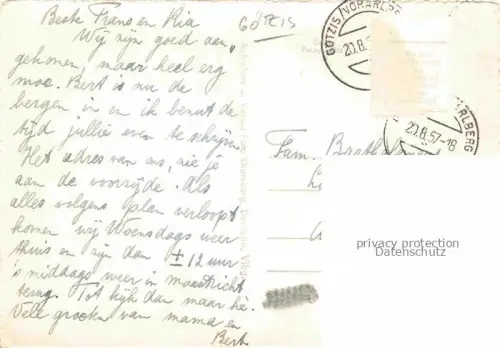 Beste Frans en Ria
Wij zijn goed aan„
gekomen, maar heel erg
moe. Bert is nu de
bergen in en ik benut de
tijd jullie even te schrijven
Het adres van ons, zie je
aan de voorzijde. Als
alles volgens plan verloopt
komen wij Woensdags weer
thuis en zijn dan ± 12 uur
's middags weer in maastricht
terug. Tot kijk dan maar hè.
Vele groeten van mama en
Bert
GÖTZIS
GÖTZIS/VORARLBERG
20.8.5
20.8.57-18
ARLBERG
Fam.
privacy protection
Datenschutz